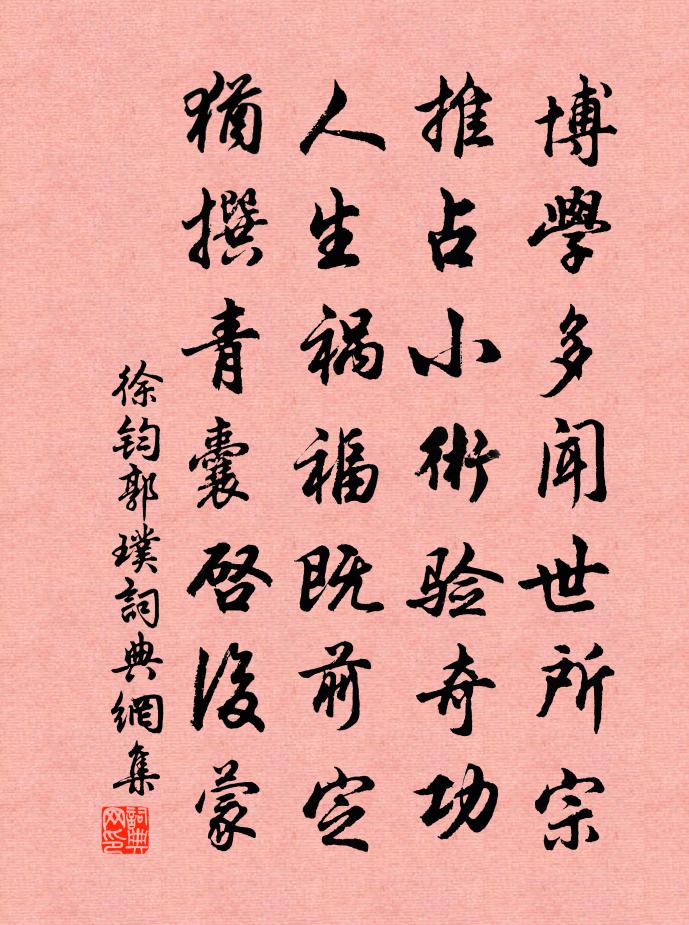 博學多闻世所宗
推占小術验奇功
人生禍福既前定
猶撰青囊启後蒙
徐钧郭璞詞典網集
詞典网印